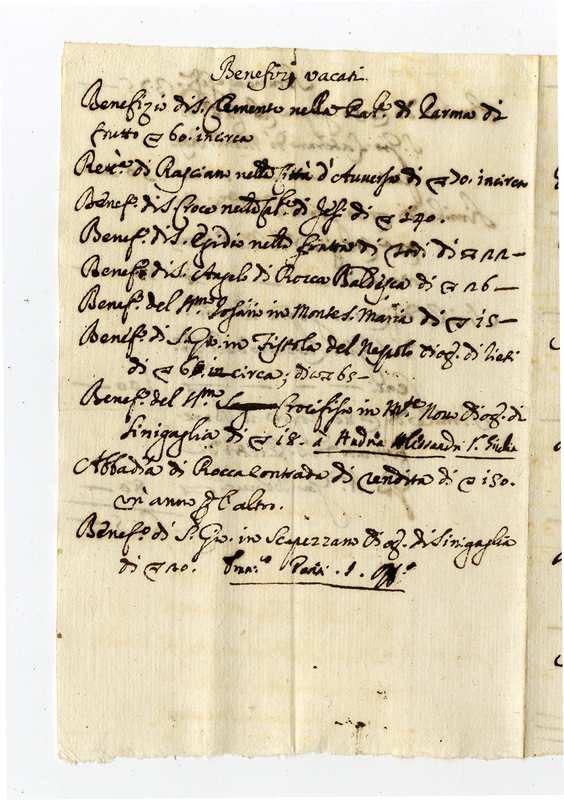 Benefizj vacati
Benefizio di S. Clemente nella Cat.le di Parma di
frutto ∇ 60. incirca
di Rasciano nella Città d'Anversa di ∇ 70. incirca
Benef.o di S. Croce nella Cat.le di Jesi di ∇ 140.
Benef.o di S. Egidio nella di Todi di ∇ 22 —
Benef.o di S. Angelo di Rocca Baldesca di ∇ 26 —
Benef.o del S.mo Rosario in Monte S. Maria di ∇ 15 —
Benef.o di S. Gio. in Fistola del Nespolo Diog. di Rieti
di ∇ 6 in circa; di ∇ 65 —
Benef.o del S.mo Crocifisso in M.te Novo Diog. di
Sinigaglia di ∇ 18. a
Abbadia di Rocca Contrada di rendita di ∇ 150.
un anno p l'altro.
Benef.o di S. Gio. in Scapezzano Diog. di Sinigaglia
di ∇ 20.